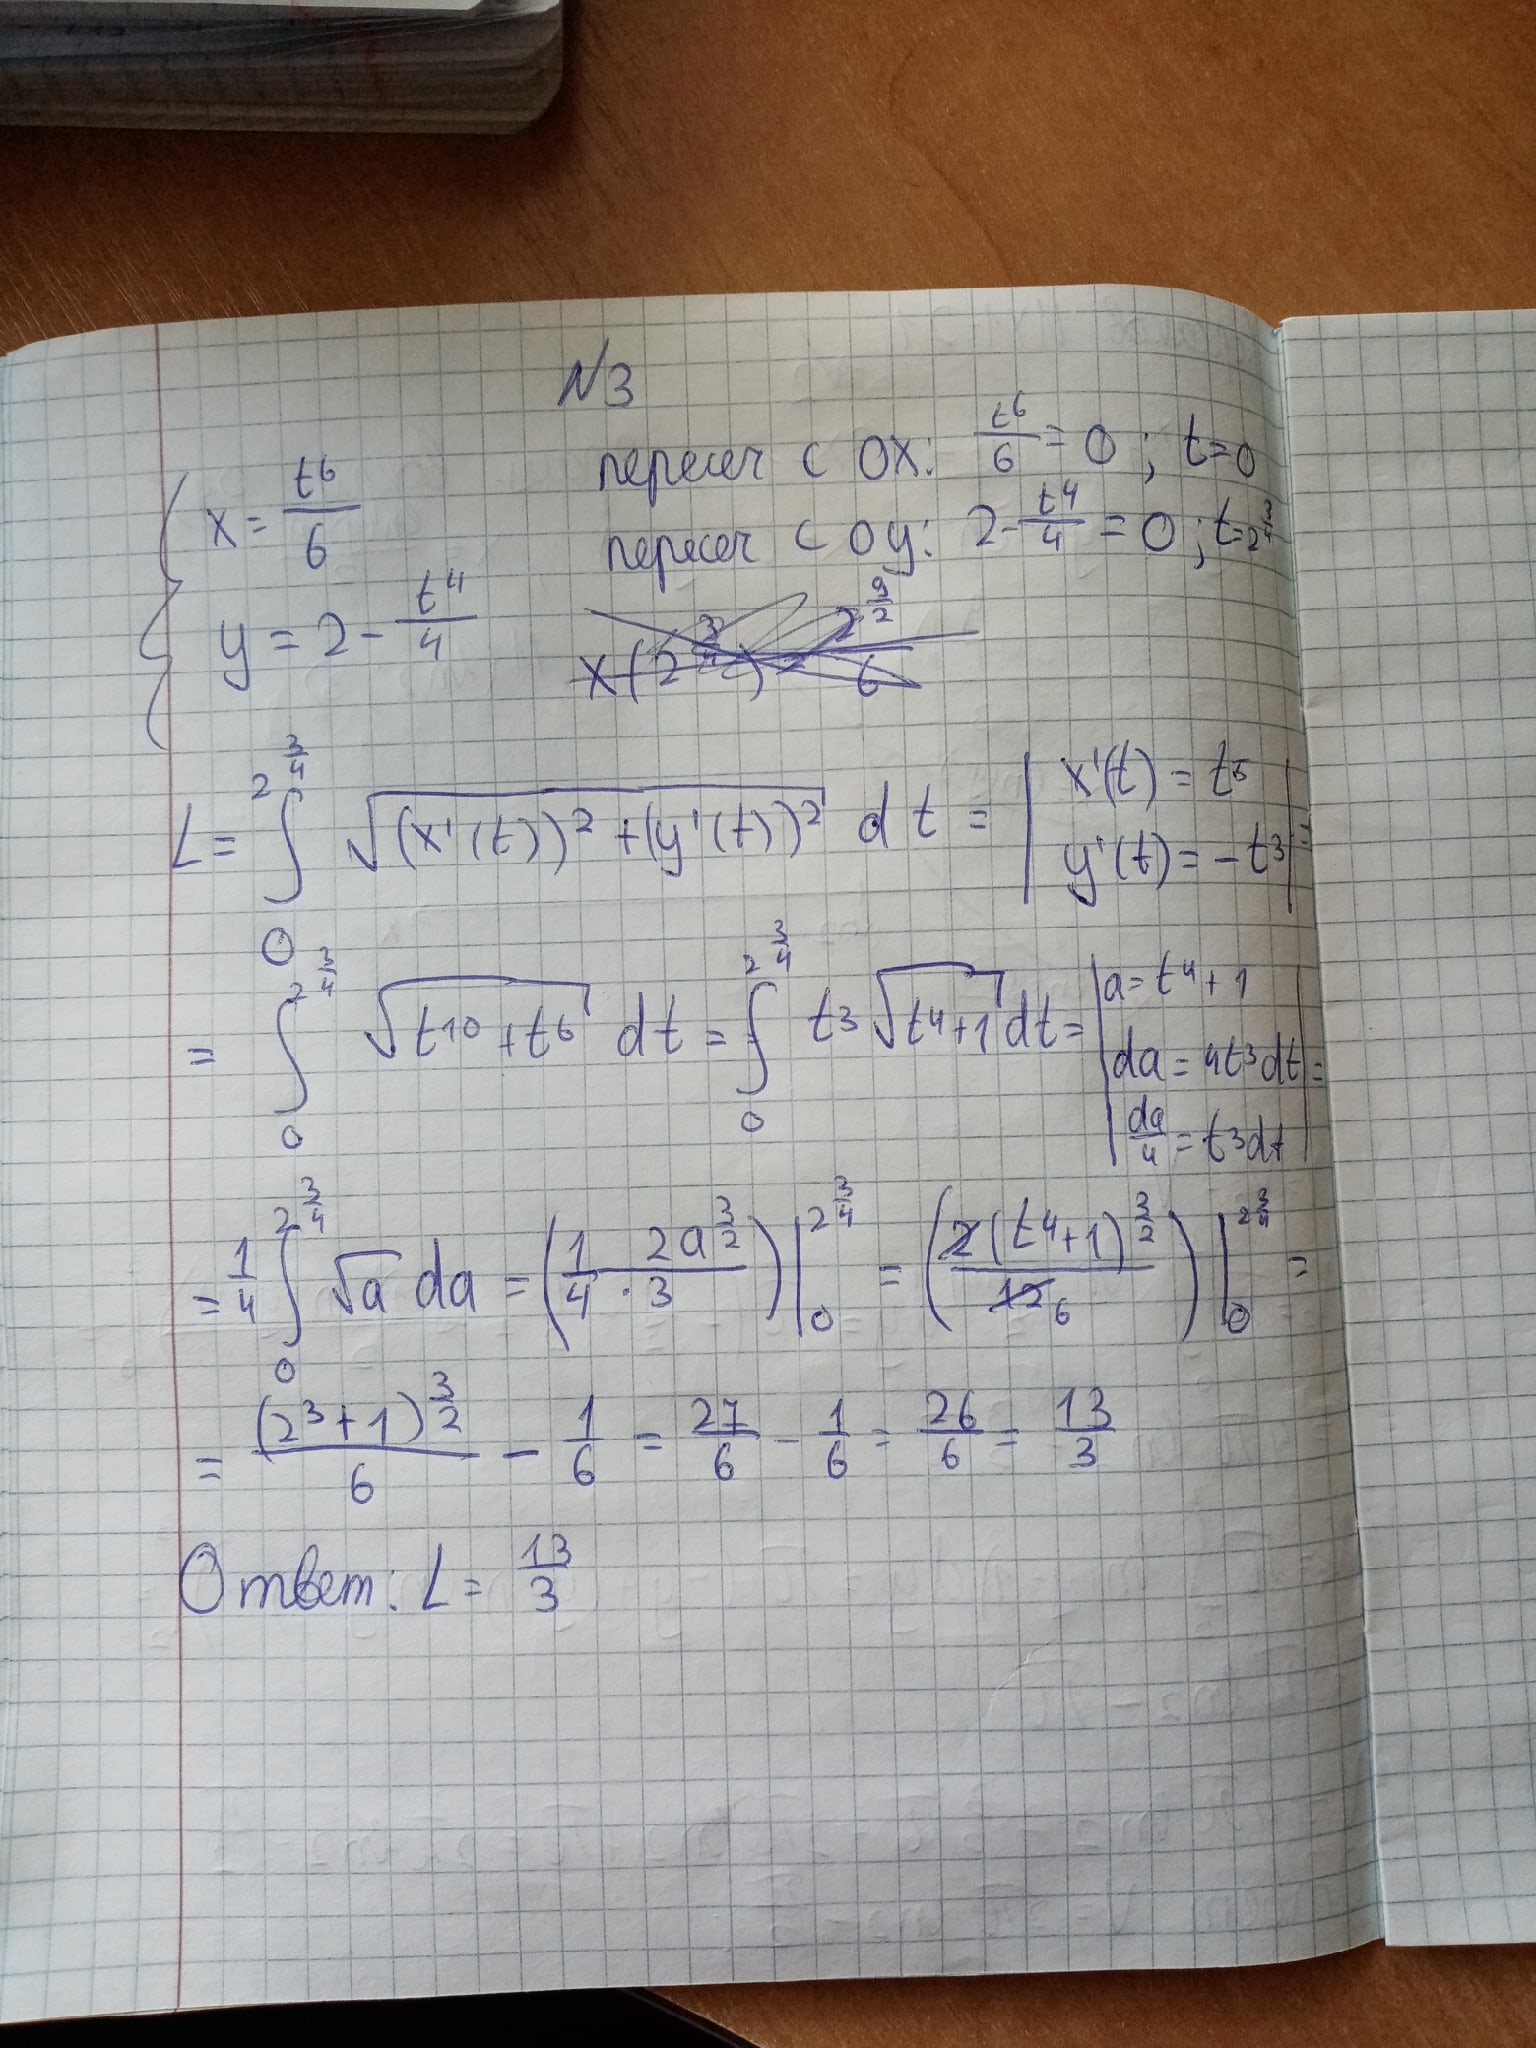 N3
пересеч с OX: t^6/6 = 0; t=0
{ x = t^6/6
пересеч с OY: 2 - t^4/4 = 0; t=2^(3/4)
y = 2 - t^4/4
x(2^(3/4)) = 2^(9/2)/6
L = ∫_0^(2^(3/4)) √((x'(t))^2 + (y'(t))^2) dt = | x'(t) = t^5
y'(t) = -t^3 | =
= ∫_0^(2^(3/4)) √(t^10 + t^6) dt = ∫_0^(2^(3/4)) t^3 √(t^4+1) dt = | a = t^4+1
da = 4t^3dt
da/4 = t^3dt | =
= 1/4 ∫_0^(2^(3/4)) √a da = (1/4 · 2a^(3/2)/3) |_0^(2^(3/4)) = (2(t^4+1)^(3/2) / 12 6) |_0^(2^(3/4)) =
= (2^3+1)^(3/2)/6 - 1/6 = 27/6 - 1/6 = 26/6 = 13/3
Ответ: L = 13/3